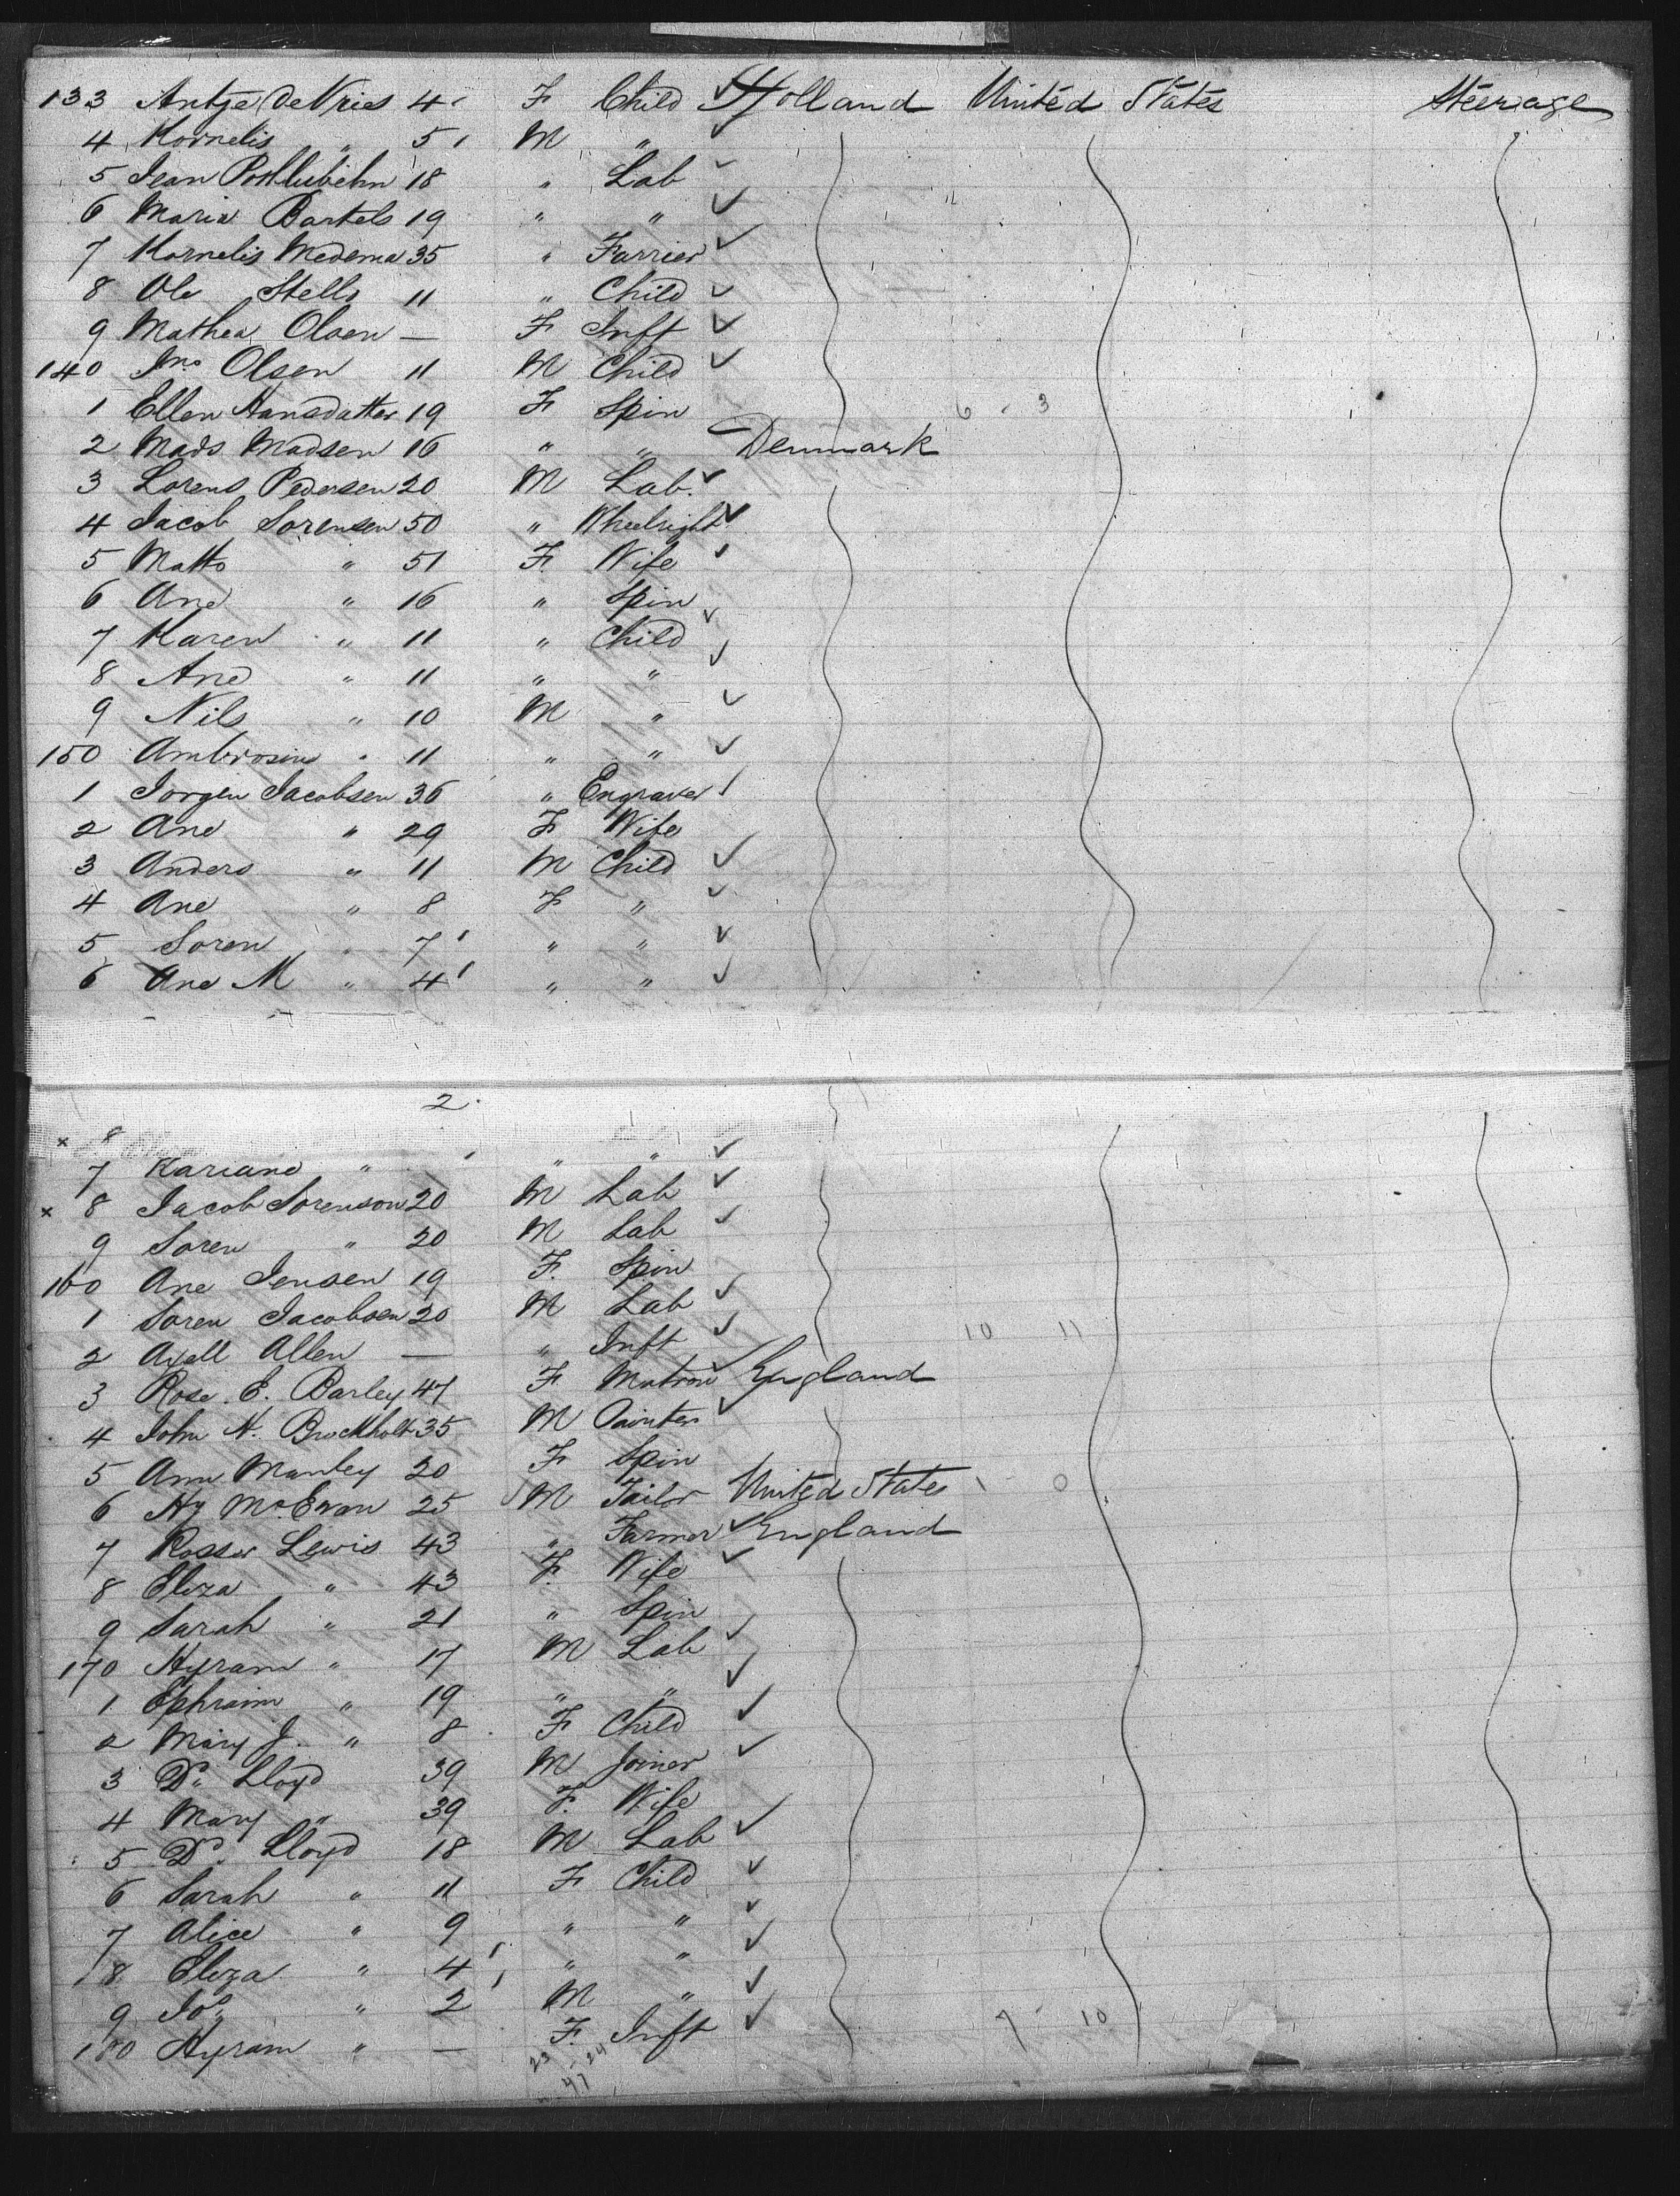 133 Antje DeVries 4 F Child Holland United States Steerage
4 Kornelis " 5 M "
5 Jean 18 " Lab
6 Maria Bartels 19 " "
7 Kornelis Medema 35 " Farrier
8 Ole Stells 11 " Child
9 Mathea Olsen — F Inft
140 Jno Olsen 11 M Child
1 Ellen Hansdatter 19 F Spin 6 3
2 Mads Madsen 16 " " Denmark
3 Lorens Pedersen 20 M Lab.
4 Jacob Sorensen 50 " Wheelright
5 Matts " 51 F. Wife
6 Ane " 16 " Spin
7 Karen " 11 " Child
8 Ane " 11 " "
9 Nils " 10 M "
150 Ambrosine " 11 " "
1 Jorgen Jacobsen 36 " Engraver
2 Ane " 29 F Wife
3 Anders " 11 M Child
4 Ane " 8 F "
5 Soren " 7 " "
6 Ane M " 4 " "
2
x 8
7 Kariane " " "
x 8 Jacob Sorenson 20 M Lab
9 Soren " 20 M Lab
160 Ane Jensen 19 F. Spin
1 Soren Jacobsen 20 M Lab
2 Axell Allen — " Inft 10 11
3 Rose E. Barley 47 F Matron England
4 John N. Brockholt 35 M Painter
5 Ann Manley 20 F Spin
6 Hy McEwan 25 M Tailor United States 1 0
7 Rosser Lewis 43 " Farmer England
8 Eliza " 43 F. Wife
9 Sarah " 21 " Spin
170 Hyram " 17 M Lab
1 Ephraim " 19 " "
2 Mary J. " 8 F Child
3 Dd. Lloyd 39 M Joiner
4 Mary " 39 F. Wife
5 Dd. Lloyd 18 M Lab
6 Sarah " 11 F Child
7 Alice " 9 " "
8 Eliza " 4 " "
9 Jos " 2 M "
180 Hyram " — F. Inft 7 - 10
23 - 24
47